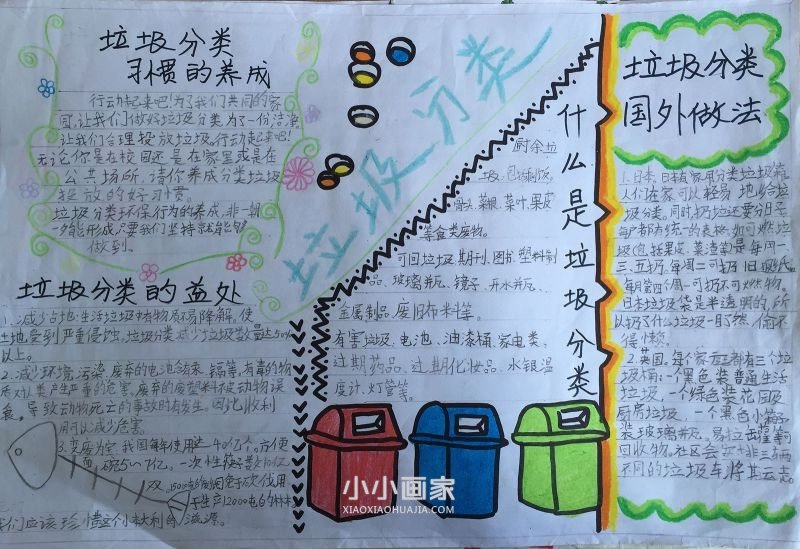 垃圾分类
习惯的养成
行动起来吧!为了我们共同的家
园,让我们做好垃圾分类为了一份洁净,
让我们合理投放垃圾,行动起来吧!
无论你是在校园还是在家里或是在
公共场所,请你养成分类垃圾
投放的好习惯。
垃圾分类环保行为的养成,非一朝
一夕能形成,只要我们坚持就能够
做到.
垃圾分类的益处
1、减少占地:生活垃圾
土地受到严重侵蚀,垃圾分类减少垃圾数量达
以上。
2.减少环境污染:废弃的电池含
汞、镉等,有毒的物
质对人类产生严重的危害,废弃的废塑料被动物误
食,导致动物死亡的事故时有发生。因此收利
用可以减少危害
3.变废为宝:我国每年使用 40亿个,方便
面碗5~7亿。一次性筷子
我们应该珍惜
垃圾分类
什么是垃圾分类
厨余垃
圾:
骨头、菜根、菜叶、果皮
等食类废物。
可回垃圾:期刊、图书、塑料制
品、玻璃瓶、镜子、开水瓶、
金属制品、废旧布料等。
有害垃圾:电池、油漆桶、家电类、
过期药品、过期化妆品、水银温
度计、灯管等。
垃圾分类
国外做法
1.日本:日本有家用分类垃圾箱,
人们在家可以轻易地给垃
圾分类。同时扔垃圾还要分日子,
每户都有统一的表格,如可燃垃
圾(包括果皮、菜渣)是每周一
三、五扔,每周三可扔旧报纸。
每月第四个周一可扔不可燃物。
日本垃圾袋是半透明的,所
以扔了什么垃圾一目了然,偷不
得懒。
2.英国:每个家庭都有三个垃
圾桶:一个黑色,装普通生活
垃圾,一个绿色装花园及
厨房垃圾,一个黑色小箱子
装玻璃瓶、易拉罐等可
回收物。社区会安排三辆
不同的垃圾车将其运走。
小小画家
XIAOXIAOHUAJIA.COM